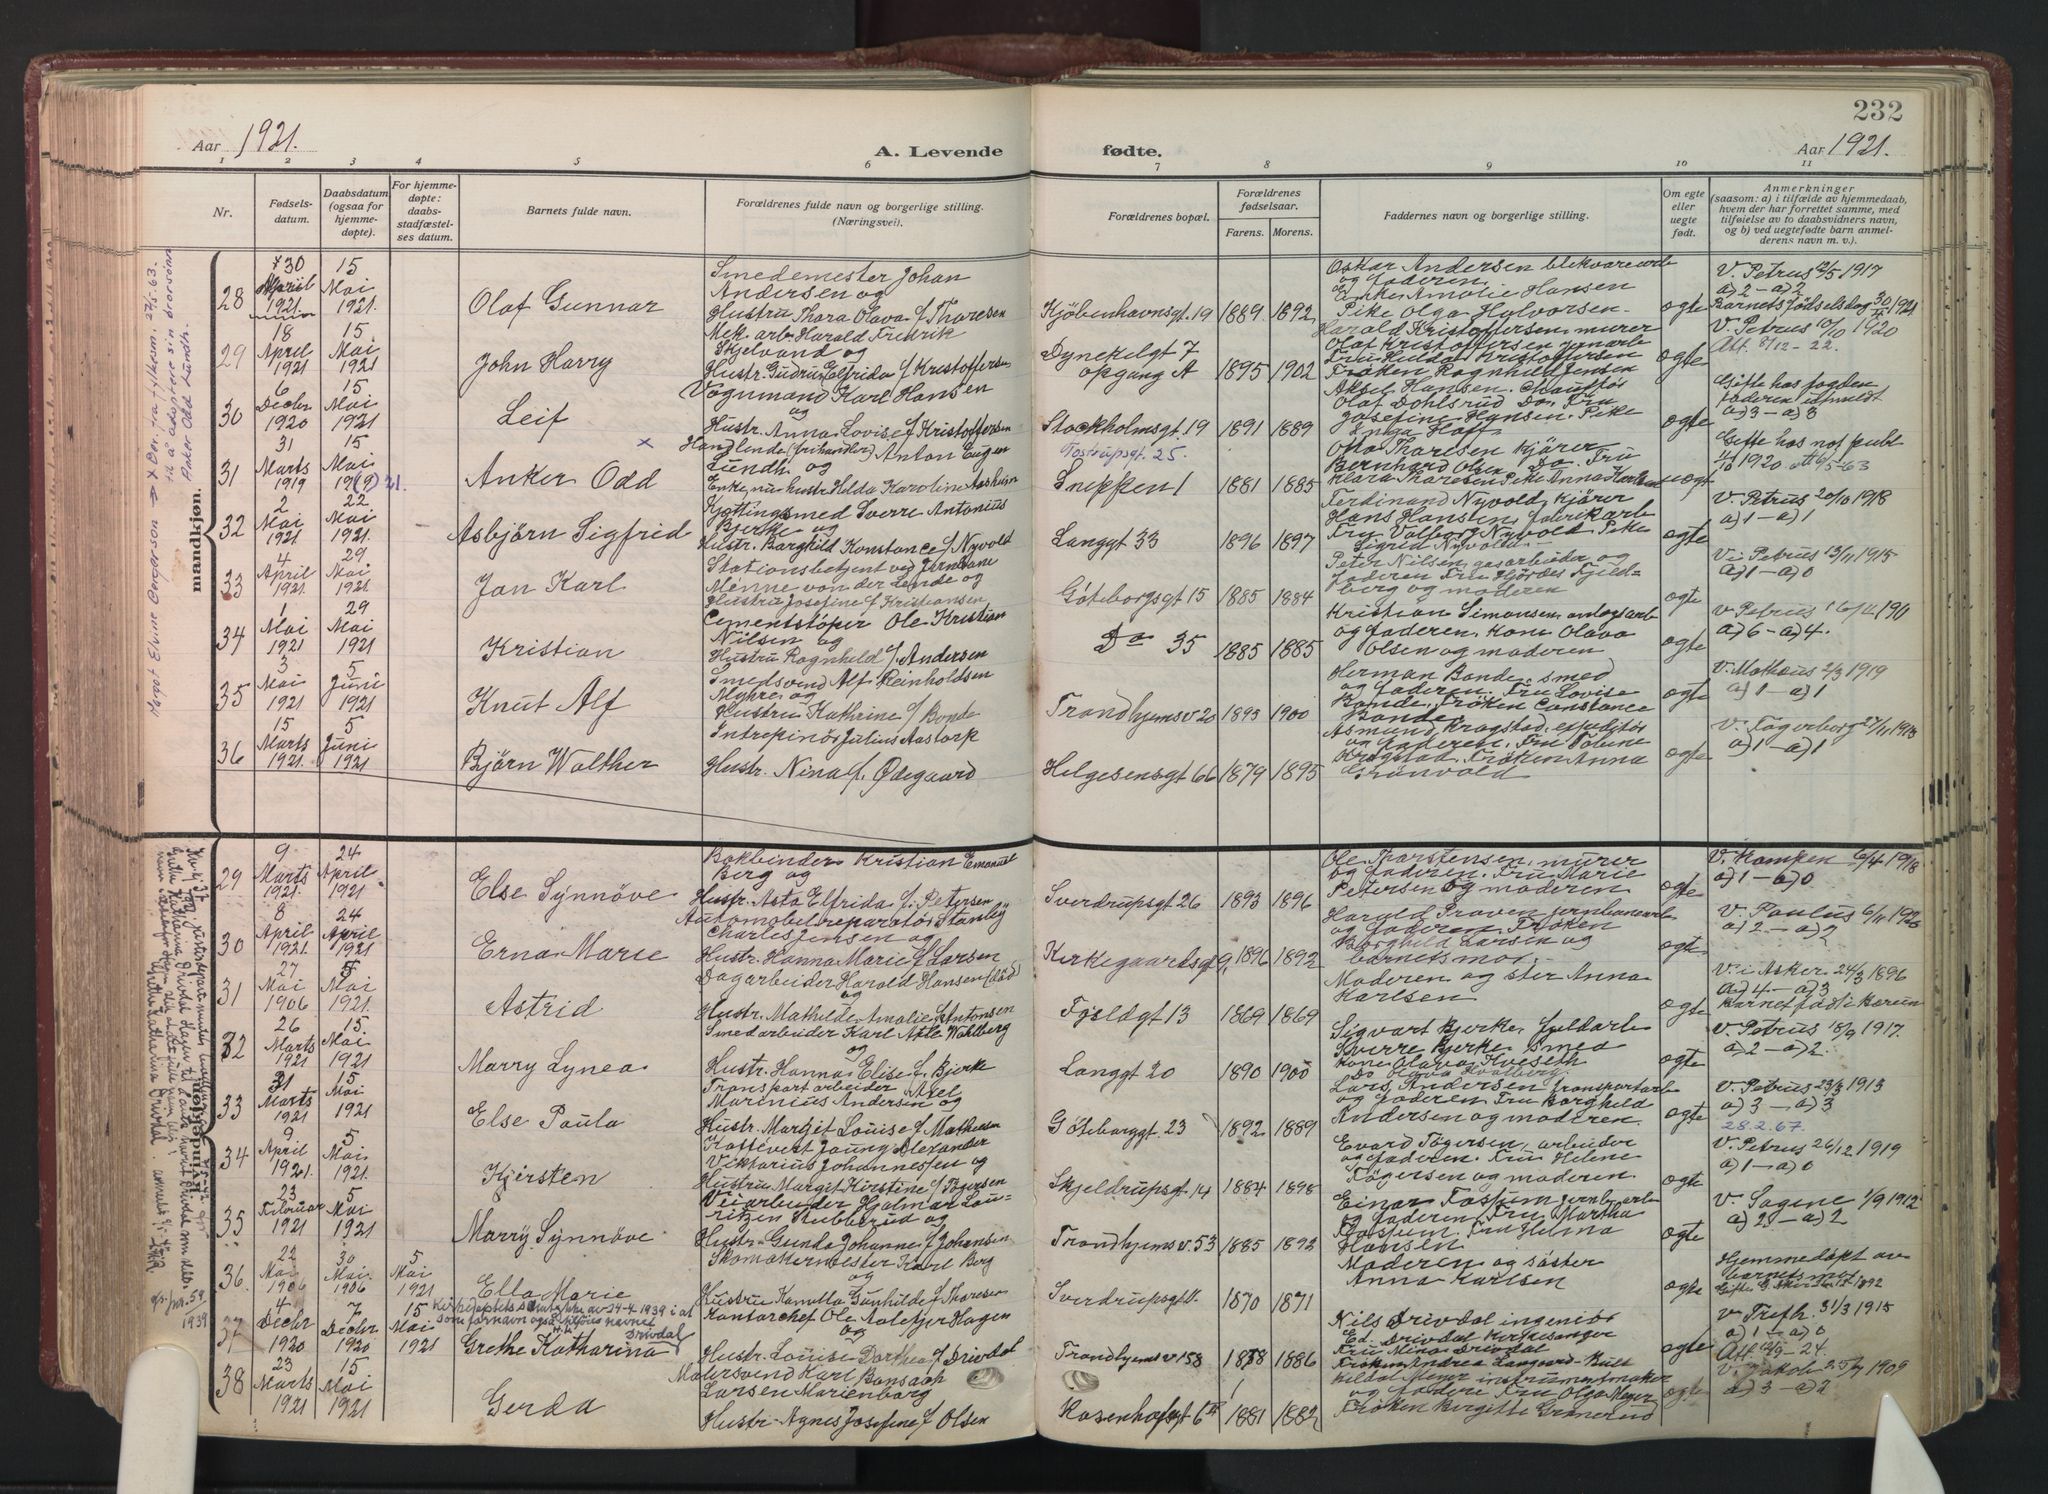 232
Aar 1921.
A. Levende fødte.
Aar 1921.
1 2 3 4 5 6 7 8 9 10 11
Nr.
Fødsels-
datum.
Daabsdatum
(ogsaa for
hjemme-
døpte).
For hjemme-
døpte:
daabs-
stadfæstel-
ses datum.
Barnets fulde navn.
Forældrenes fulde navn og borgerlige stilling.
(Næringsvei).
Forældrenes bopæl.
Forældrenes
fødselsaar.
Farens. Morens.
Faddernes navn og borgerlige stilling.
Om egte
eller
uegte
født.
Anmerkninger
(saasom: a) i tilfælde av hjemmedaab,
hvem der har forrettet samme, med
tilføielse av to daabsvidners navn,
og b) ved uegtefødte barn anmel-
derens navn m. v.).
mandkjøn.
28
30
April
1921.
15
Mai
1921.
Olaf Gunnar
Smedemester Johan
Andersen og
Hustru Thara Olava f. Tharesen
Kjøbenhavnsgt 19
1889. 1892
Oskar Andersen blekvarearb
og faderen.
Enke Amalie Hansen
Pike Olga Halvorsen
egte
V. Petrus 12/5 1917
a) 2 – a) 2
Barnets fødselsdag 30/4 1921
29
18
April
1921
15
Mai
1921
John Harry
Mek. arb. Harald Fredrik
Skjelvand og
Hustr. Gudrun Elfrida f Kristoffersen
Dynekilgt 7
opgang A
1895 1902
Harald Kristoffersen murer
Olaf Kristoffersen jernarb
Fru Hilda Kristoffersen
Frøken Ragnhild Jensen
egte
V. Petrus 10/10 1920
Att. 8/12-22.
30
6
Decbr
1920
15
Mai
1921
Leif
Vognmand Karl Hansen
og
Hustr. Anna Lovise f Kristoffersen
Stockholmsgt. 19
1891 1889
Aksel Hansen. Chauffør
Olaf Dohlsrud Do. Fru
Josefine Hansen. Pike
Inga Hoff
egte
Gifte hos fogden
faderen utmeldt
a) 3 – a) 3
31
31
Marts
1919
15
Mai
1919 (21.
Anker Odd
x Handlende (frihandler) Anton Eugen
Lundh. og
Enke, nu hustr. Hilda Karoline Aasheim
Tostrupsgt. 25.
Snippen 1
1881 1885
Otto Tharesen kjører
Bernhard Olsen Do. Fru
Klara Tharesen Pike Anna Karlsen
uegt
Gifte hos not. publ
1/10 1920 att 6/5-63
32
2
Mai
1921
22
Mai
1921.
Asbjørn Sigfrid
Kjøttingsmed Sverre Antonius
Bjerke og
Hustr. Borghild Konstance f. Nyvold
Langgt 33
1896 1897
Ferdinand Nyvold, kjører
Hans Hansen, fabrikarb
Fru Valborg Nyvold. Pike
Sigrid Nyvold
egte
V. Petrus 20/10 1918
a) 1 – a) 1
33
4
April
1921.
29
Mai
1921.
Jan Karl
Stationsbetjent ved Jernbane
Menne von der Lende og
Hustru Josefine f Kristiansen
Gøteborgsgt 15
1885 1884
Peter Nilsen, gasarbeider og
faderen Fru Hjørdes Fjeld-
berg og moderen
egte
V. Petrus 13/11 1915
a) 1 – a) 0
34
1
Mai
1921
29
Mai
1921
Kristian
Cementstøper Ole Kristian
Nilsen og
Hustru Ragnhild f. Andersen
Do 35
1885 1885
Kristian Simonsen, anlegsarb
og faderen. Kone Olava
Olsen og moderen
egte
V. Petrus 16/11 1911
a) 6 – a) 4.
35
3
Mai
1921
5
Juni
1921
Knut Alf
Smedsvend Alf Reinholdsen
Myhre og
Hustru Kathrine f Bonde
Trondhjemsv 20
1893 1900
Herman Bonde, smed
og faderen. Fru Lovise
Bonde. Frøken Constance
Bonde
egte
V. Matheus 2/3 1919
a) 1 – a) 1
36
15
Marts
1921.
5
Juni
1921
Bjørn Walther
Entreprinør Julius Aastorp
Hustr. Nina f. Ødegaard
Helgesensgt 66
1879 1895
Asmund Kragstad, expeditør
og faderen. Fru Valine
Kragstad. Frøken Anna
Grønvold
egte
V. Fagerborg 27/11 1913
a) 1 – a) 1
kvindekjøn
29
9
Marts
1921.
24
April
1921
Else Synnøve
Bokbinder Kristian Emanuel
Berg og
Hustr. Asta Elfrida f. Petersen
Sverdrupsgt 26
1893 1896
Ole Tharstensen, murer
og faderen. Fru Marie
Petersen og moderen
egte
V. Kampen 6/4 1918
a) 1 – a) 0
30
8
April
1921.
24
April
1921
Erna Marie
Automobilreparatør Stanley
Charles Jensen og
Hustr. Hanna Marie f Larsen
Kirkegaardsgt 9
1896 1892
Harald Praven jernbanearb
og faderen. Frøken
Borghild Larsen og
barnets mor.
egte
V. Paulus 6/11 1920
a) 2 – a) 2
31
27
Mai
1906
5
Mai
1921.
Astrid
Dagarbeider Harald Hansen (død)
og
Hustr. Mathilde Amalie f Antonsen
Fossldgt 13
1869 1869
Moderen og ster Anna
Karlsen
egte
V. i Asker 24/3 1896
a) 4 – a) 3
Barnet født i Berum
32
26
Marts
1921
15
Mai
1921
Marry Synea
Smedarbeider Karl Atle Wahlberg
og
Hustr. Hanna Elise f. Bjerke
Langgt 20
1890 1900
Sigvart Bjerke, guldarb
Sverre Bjerke smed
Kone Olava Kveseth
Do Olava Kvalberg
egte
V. Petrus 18/9 1917.
a) 2 – a) 2.
33
31
Marts
1921
15
Mai
1921
Else Paula
Transportarbeider Axel
Marinius Andersen og
Hustr. Margit Louise f Mathisen
Gøteborggt. 23
1892 1889
Lars Andersen transportarb
og faderen Fru Borghild
Andersen og moderen.
egte
V. Petrus 23/3 1913
a) 3 – a) 3
28.2.67.
34
9
April
1921.
5
Mai
1921.
Kjersten
Kaffevert Joung Alexander
Viktarius Johannessen og
Hustru Margit Kirstine f Tøgersen
Skjeldrupsgt. 14
1884 1898
Evard Tøgersen, arbeider
og faderen. Fru Helene
Tøgersen og moderen.
egte
V. Petrus 26/12 1919
a) 1 – a) 0
35
23
Februar
1921
5
Mai
1921
Marry Synnøve
Veiarbeider Hjalmar Lau-
ritzen Stubberud og
Hustr. Gunda Johanne f Johansen
Trondhjemsv. 53
1885 1892
Einar Fossum jernb.arb
og faderen. Fru Martha
Fossum. Fru Helma
Hansen
egte
V. Sagene 1/9 1912
a) 2 – a) 2
36
22
Mai
1906
30
Mai
1906
5
Mai
1921
Ella Marie
Skomakermester Karl Berg
og
Hustru Kamilla Gunhilde f Tharesen
Sverdrupsgt 11
1870 1871
Moderen og søster
Anna Karlsen
egte
Hjemmedøpt av
barnets mor
37
4
Decbr
1920
7
Decbr
1920
15
Mai
1921
Drivdal
Grethe Katharina
Kontorchef Ole Aalefjer Hagen
og
Hustr. Louise Dorthea f Drivdal
Trondhjemsv 158
1878 1886
Nils Drivdal ingeniør
Ed. Drivdal kirkesanger
Fru Mina Drivdal
Frøken Andrea Langaard-Bull
egte
V. Trefh. 31/3 1915
a) 1 – a) 0
Att 12/9-24.
38
23
Marts
1921
15
Mai
1921
Gerda
Malersvend Karl Bonsaap
Larsen Marienborg
Hustr. Agnes Josefine f Olsen
Rosenhofgt 6 II
1881 1882
Kildal Meyer instrumentmaker
og fadere Fru Olga Meyer
Frøken Birgitte Grønerud
egte
V. Jakob 25/7 1909
a) 3 – a) 2